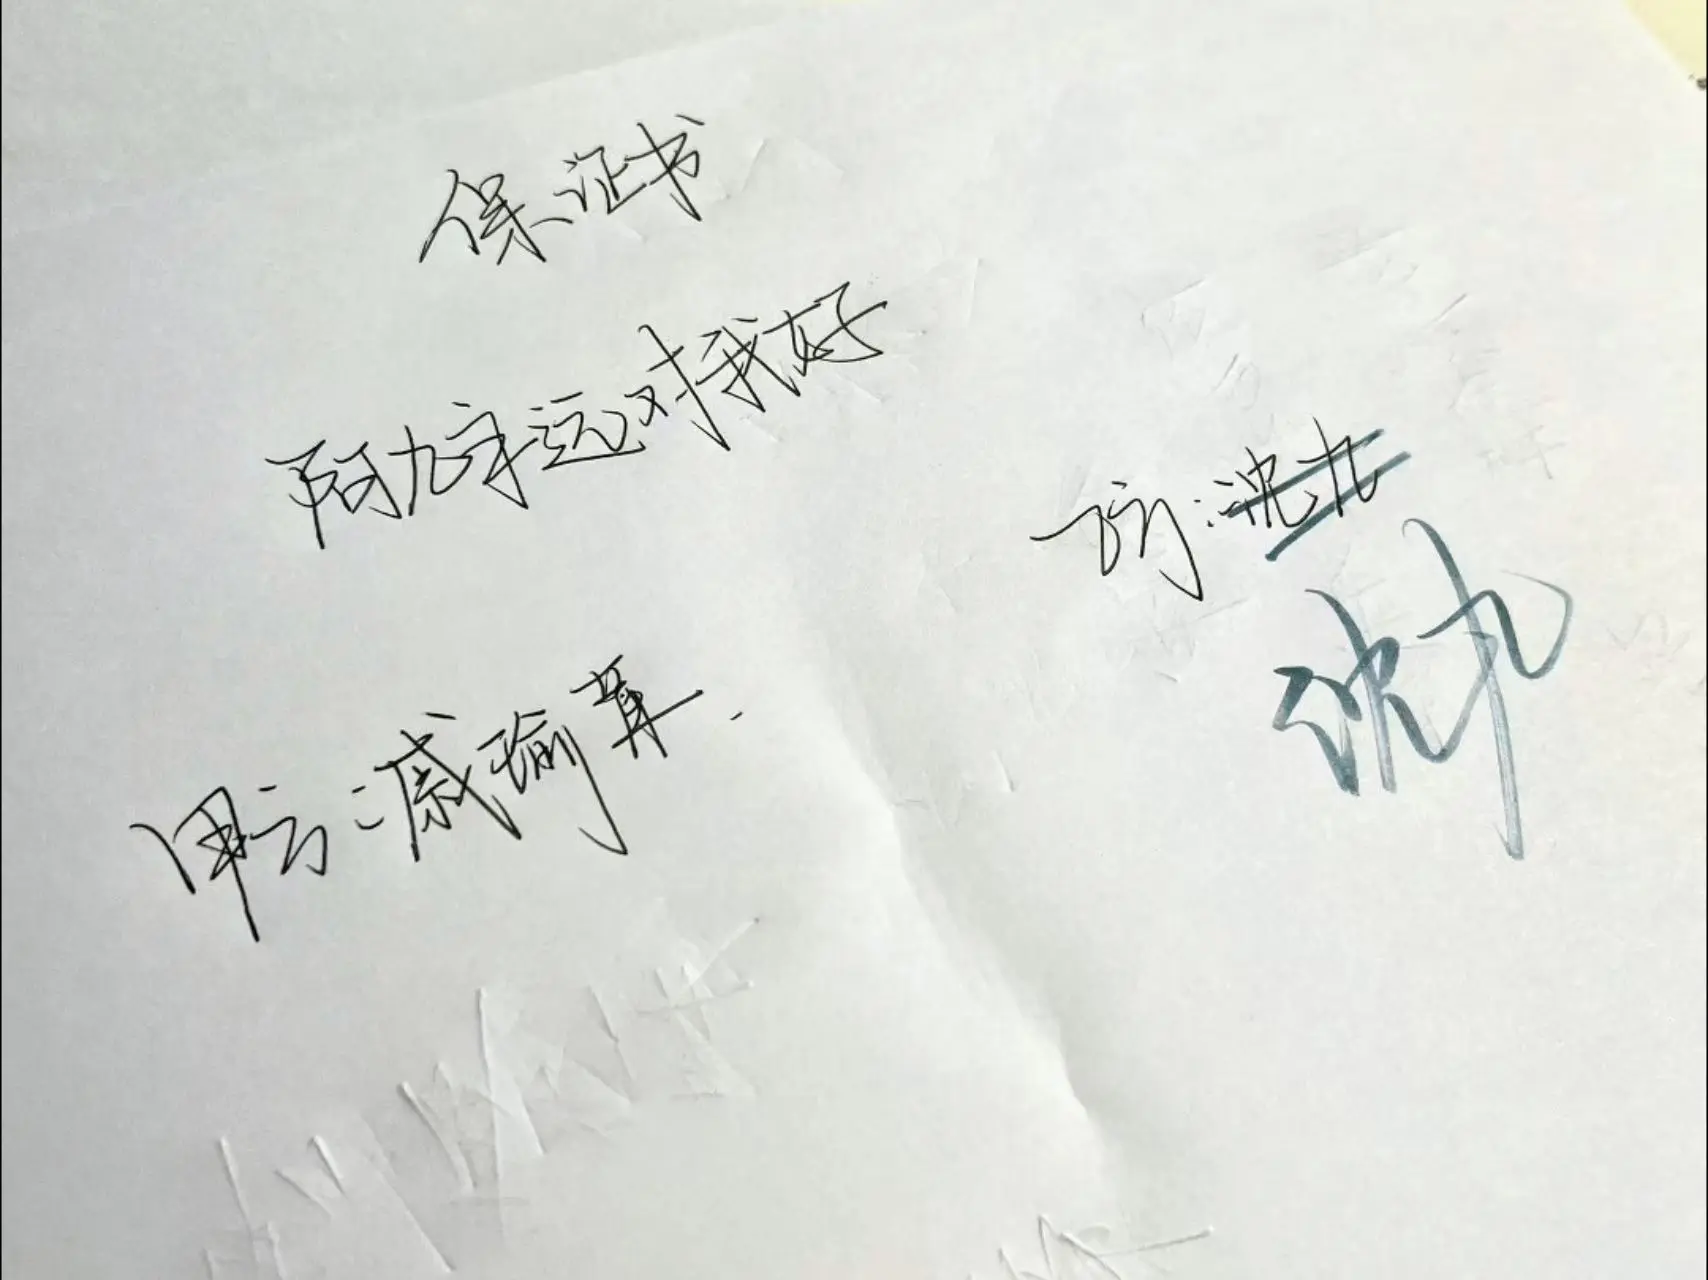 保证书
阿九永远对我好
甲方:戚瑜
乙方:沈九
沈九